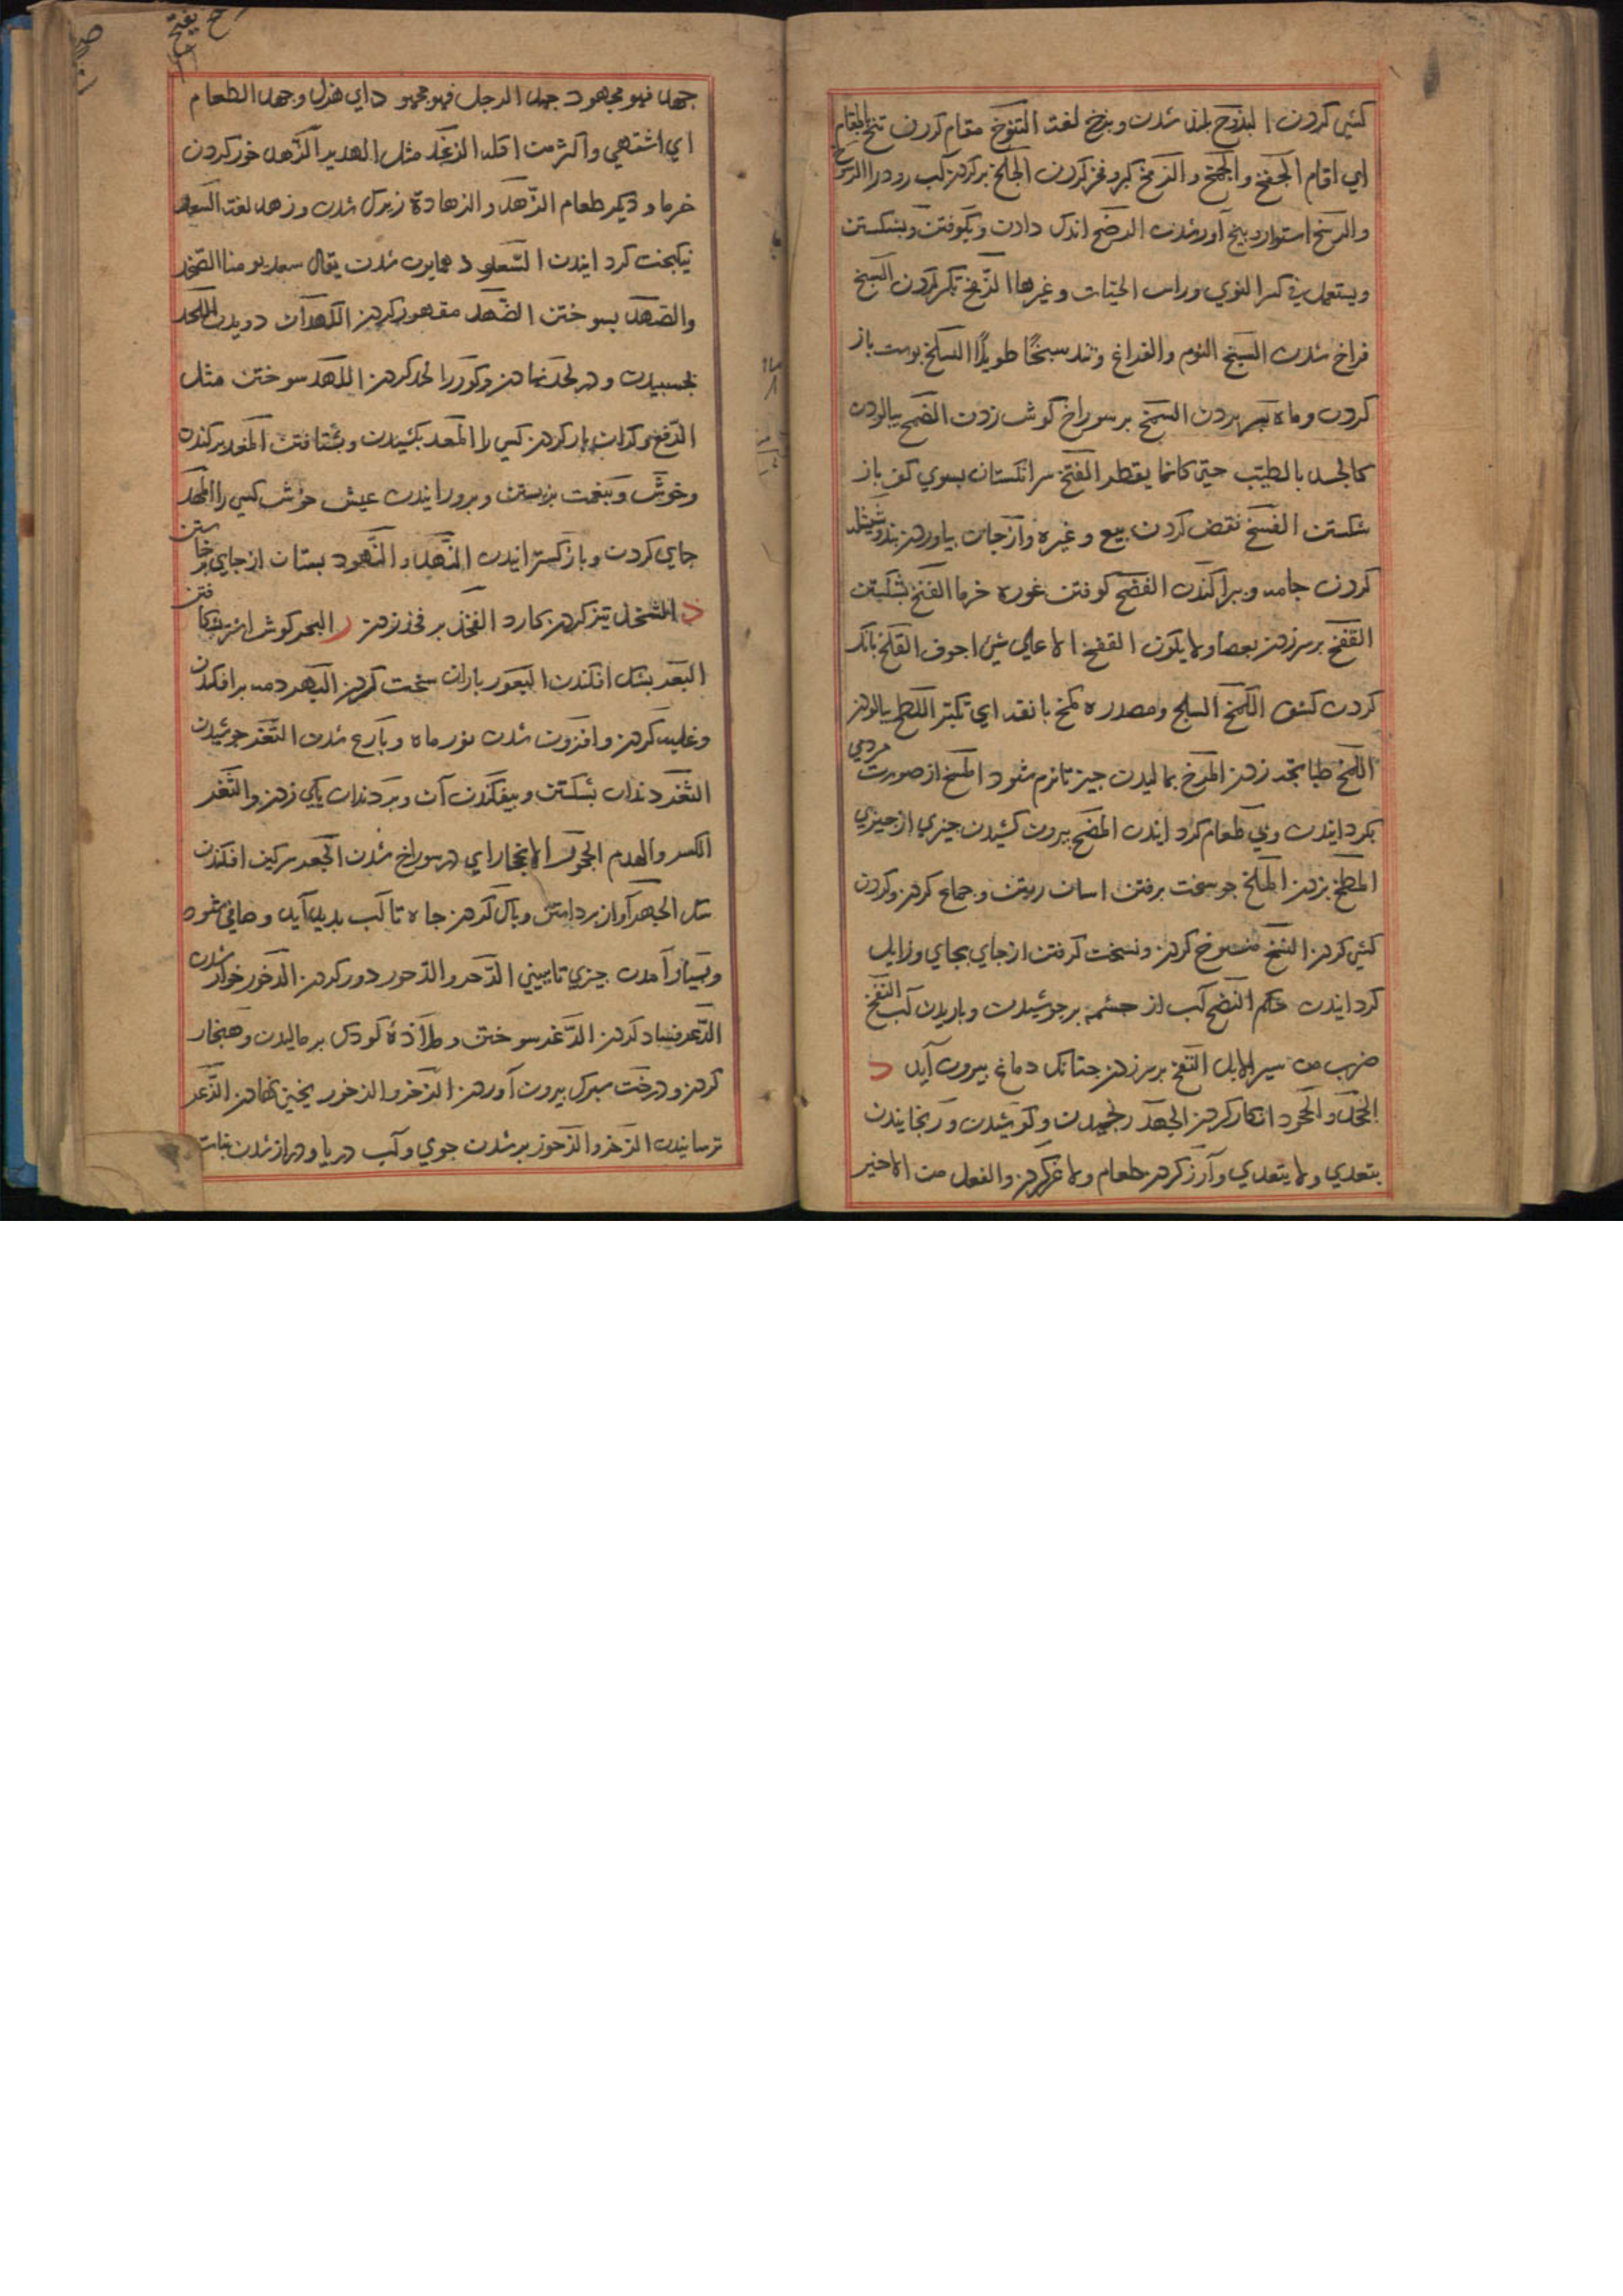 كشی كردن البذوخ بلند شدن وبزخ لغة التنوخ مقام كردن تنخ بالمقام
ای اقام الجفخ والجمخ والزمخ كبر وفخر كردن الجلخ بر كردن آب رود را الرسوخ
والرسخ استوار وبیخ آور شدن الرضخ اندك دادن وبكوفتن وبشكستن
ویستعمل فی كسر النوی وراس الحیات وغیرها الزمخ تكبر كردن السبخ
فراخ شدن السبخ النوم والفراغ سبخا طویلا السلخ پوست باز
كردن وماه بسر بردن السمخ بر سوراخ كوش زدن الضمخ بیالودن
كالجسد بالطیب حتی كانما یقطر الفتخ سر انكشتان بسوی كف باز
شكستن الفسخ نقض كردن بیع وغیره وازجای بیاوردن
كردن جامه وپراكندن الفضخ كوفتن غوره خرما الفنخ بشكستن
القفخ بر سر زدن بعصا ولا یكون القفخ الا علی شیء اجوف القلخ بانك
كردن كشن الكمخ السلح ومصدره كمخ بانفه ای تكبر اللطخ بیالودن
اللمخ طبانچه زدن المرخ بمالیدن چیز تا نرم شود المسخ از صورت مردمی
بكردانیدن وبی طعم كردانیدن المضخ بیرون كشیدن چیزی از چیزی
المطخ بزدن الملخ سخت برفتن اسان وجماع كردن وكردن
كشی كردن النسخ منسوخ كردن ونسخت كرفتن از جای بجای وزایل
كردانیدن حكم النضخ آب از چشمه بر جوشیدن وباریدن آب النفخ
ضرب من سیر الابل النقخ بر سر زدن چنانك دماغ بیرون آید د
الجحد والجحود انكار كردن الجهد رنجیدن وكوشیدن ورنجانیدن
یتعدی ولا یتعدی وآرزو كردن طعام ولاغر كردن والفعل من الاخیر
جهد فهو مجهود جهد الرجل فهو مجهود ای هزل وجهد الطعام
ای اشتهی واكثر من اكله الزغد مثل الهدیر الزهد حزر كردن
خرما ودیكر طعام الزهد والزهادة زیرك شدن وزهد لغة السعد
نیكبخت كردانیدن السعود همایون شدن یقال سعد یومنا الصخد
والصهد بسوختن الضهد مقهور كردن اللهدان دویدن اللحد
بخسبیدن ودر لحد نهادن وكور را لحد كردن اللهد سوختن مثل
الدفع وكران بار كردن كسی را المعد بكشیدن وبشتافتن المغد بركندن
وخوش وبنعمت بزیستن وپرورانیدن عیش خوش كسی را المهد
جای كردن وباز كسترانیدن النهد والنهود پستان از جای برخاستن
ذ الشحذ تیز كردن كارد الفخذ بر فخذ زدن ر البحر كوش اشتر شكافتن
البعر پشك افكندن البعور باران سخت كردن البهر دمه بر افكندن
وغلبه كردن وافزون شدن نور ماه وبارع شدن التغر جوشیدن
الثغر دندان بشكستن وبیفكندن آن وبر دندان پای زدن والثغر
الكسر والهدم الجحر الانجحار ای در سوراخ شدن الجعر سركین افكندن
الجهر آواز برداشتن وپاك كردن چاه تا آب پدید آید وصافی شود
وبسیار آمدن چیزی تا ببینی الدحر والدحور دور كردن الدخور خوار شدن
الدعر فساد كردن الدغر سوختن وملازه كودك بر مالیدن وهنجار
كردن ودرخت سبزك بیرون آوردن الذخر والذخور یخنی نهادن الذعر
ترسانیدن الزخر والزخور پر شدن جوی وآب دریا ودراز شدن نبات